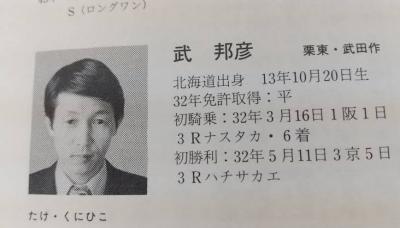 S（ロングワン）
武　邦彦　栗東・武田作
北海道出身　13年10月20日生
32年免許取得：平
初騎乗：32年３月16日１阪１日
３Ｒナスタカ・６着
初勝利：32年５月11日３京５日
３Ｒハチサカエ
たけ・くにひこ